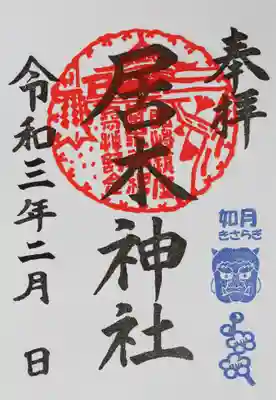 奉拝
居木神社
令和三年二月 日
如月
きさらぎ